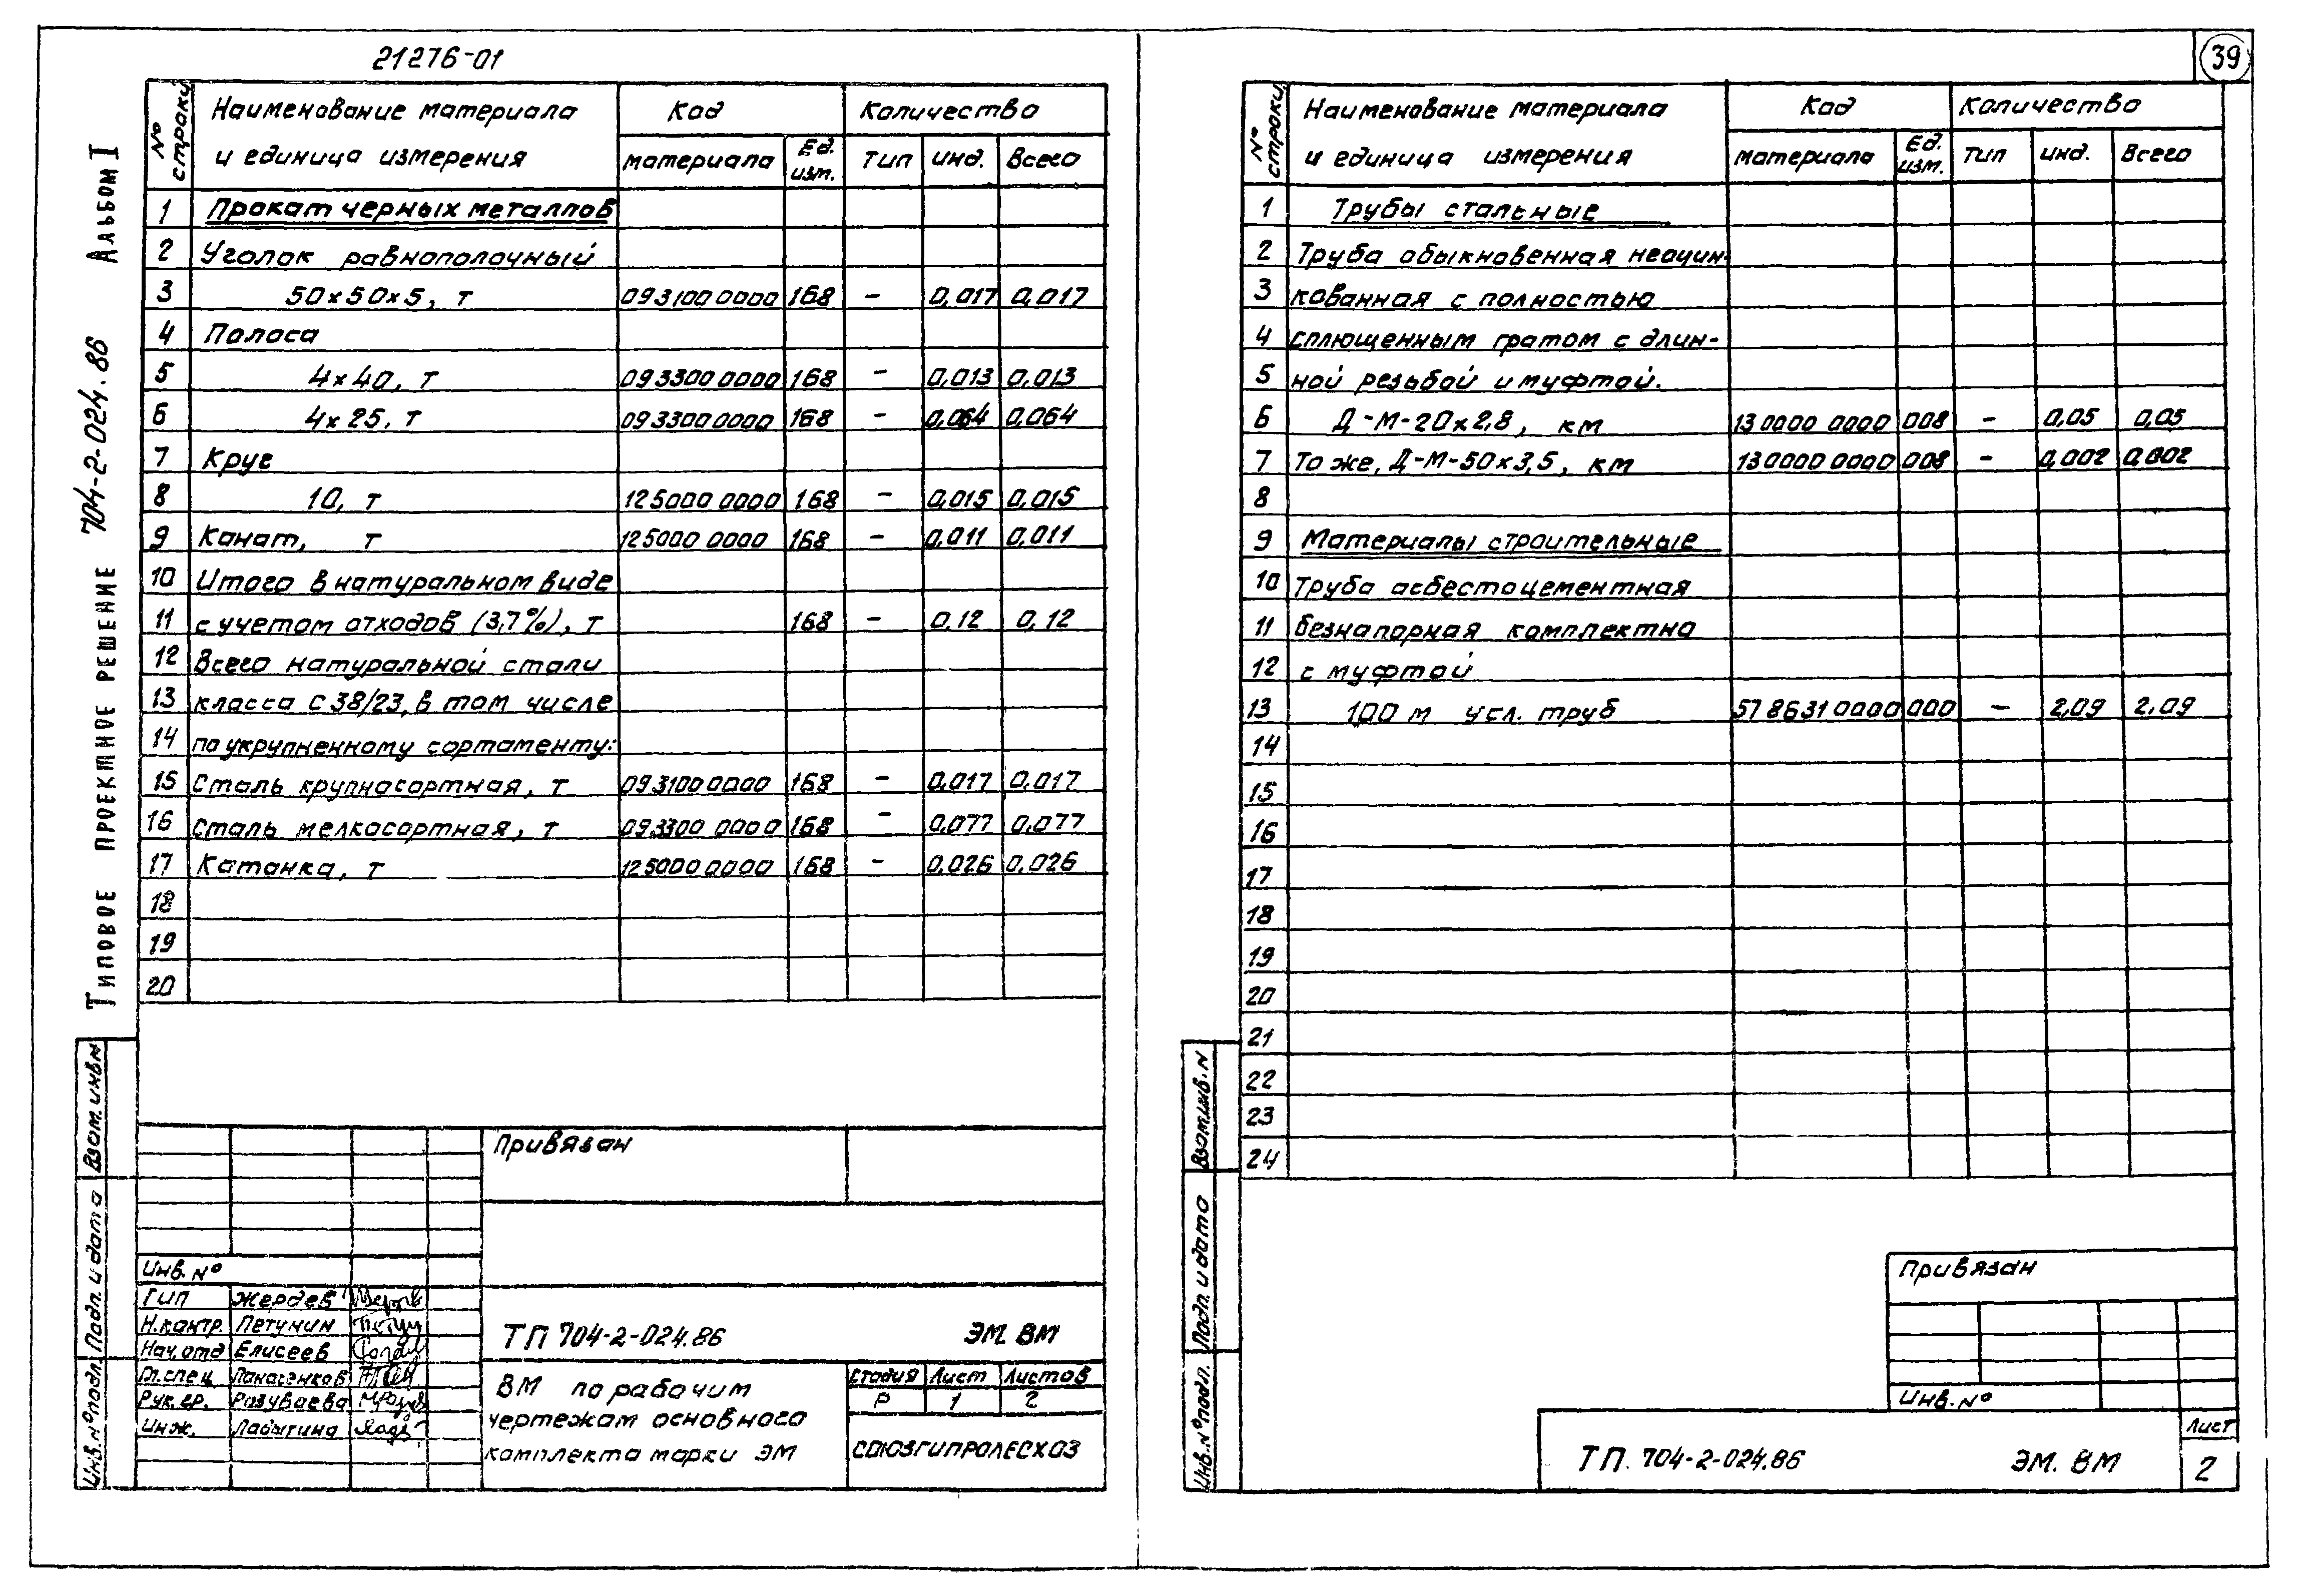 21276-01
39
Типовое проектное решение 704-2-024.86 Альбом I
№ строки | Наименование материала и единица измерения | Код материала | Ед. изм. | Количество Тип | инд. | Всего
1 Прокат черных металлов
2 Уголок равнополочный
3 50×50×5, т 093100 0000 168 – 0,017 0,017
4 Полоса
5 4×40, т 093300 0000 168 – 0,013 0,013
6 4×25, т 093300 0000 168 – 0,064 0,064
7 Круг
8 10, т 125000 0000 168 – 0,015 0,015
9 Канат, т 125000 0000 168 – 0,011 0,011
10 Итого в натуральном виде
11 с учетом отходов (3,7%), т 168 – 0,12 0,12
12 Всего натуральной стали
13 класса С 38/23, в том числе
14 по укрупненному сортаменту:
15 Сталь крупносортная, т 093100 0000 168 – 0,017 0,017
16 Сталь мелкосортная, т 093300 0000 168 – 0,077 0,077
17 Катанка, т 125000 0000 168 – 0,026 0,026
18
19
20
Взам. инв. №
Подп. и дата
Инв. № подл.
Привязан
Инв. №
ГИП Жердев
Н.контр. Петунин
Нач.отд Елисеев
Гл.спец. Панасенков
Рук.гр. Разуваева
Инж. Ладыгина
ТП 704-2-024.86 ЭМ. ВМ
ВМ по рабочим
чертежам основного
комплекта марки ЭМ
Стадия Лист Листов
Р 1 2
СОЮЗГИПРОЛЕСХОЗ
№ строки | Наименование материала и единица измерения | Код материала | Ед. изм. | Количество Тип | инд. | Всего
1 Трубы стальные
2 Труба обыкновенная неоцин-
3 кованная с полностью
4 сплющенным гратом с длин-
5 ной резьбой и муфтой.
6 Д-М-20×2,8, км 130000 0000 008 – 0,05 0,05
7 То же, Д-М-50×3,5, км 130000 0000 008 – 0,002 0,002
8
9 Материалы строительные
10 Труба асбестоцементная
11 безнапорная комплектна
12 с муфтой
13 100 м усл. труб 578631 0000 000 – 2,09 2,09
14
15
16
17
18
19
20
21
22
23
24
Взам. инв. №
Подп. и дата
Инв. № подл.
Привязан
Инв. №
ТП. 704-2-024.86 ЭМ. ВМ
Лист
2